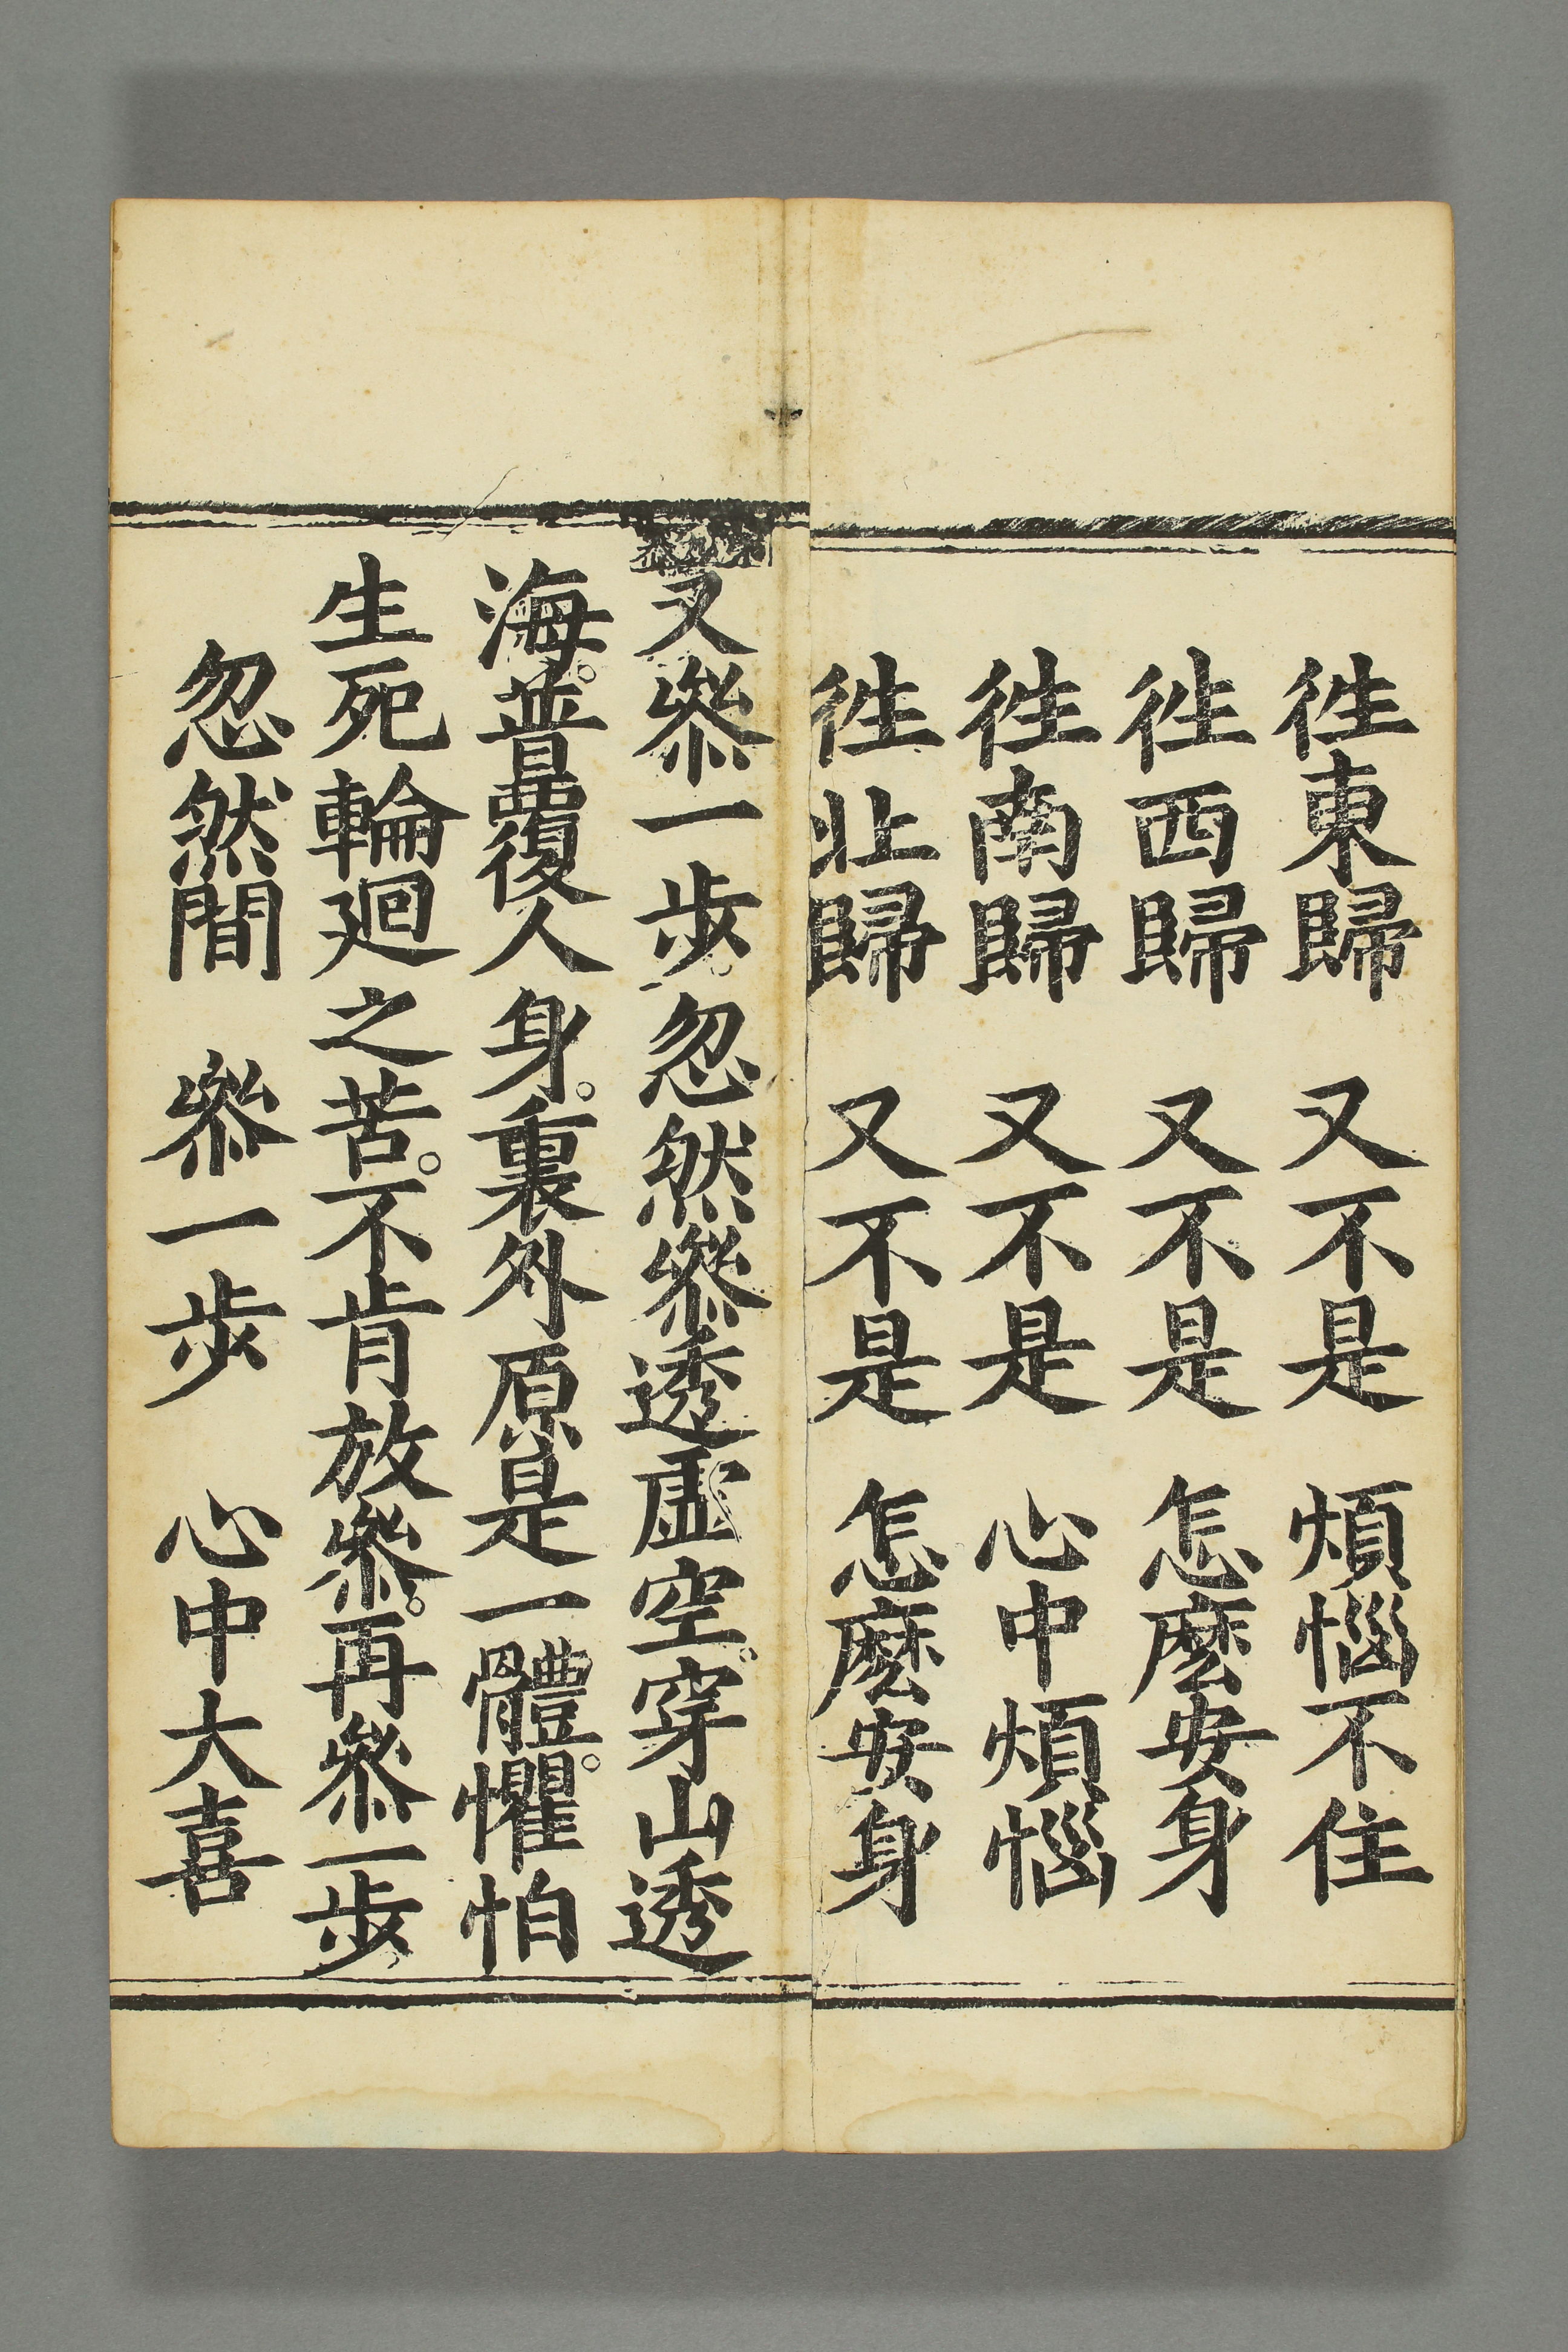 徃東歸　又不是　煩惱不住
徃西歸　又不是　怎麽安身
徃南歸　又不是　心中煩惱
徃北歸　又不是　怎麽安身
又叅一步。忽然叅透虛空。穿山透
海。普覆人身。裏外原是一體。懼怕
生死輪廻之苦。不肯放叅。再叅一步
忽然間　叅一步　心中大喜